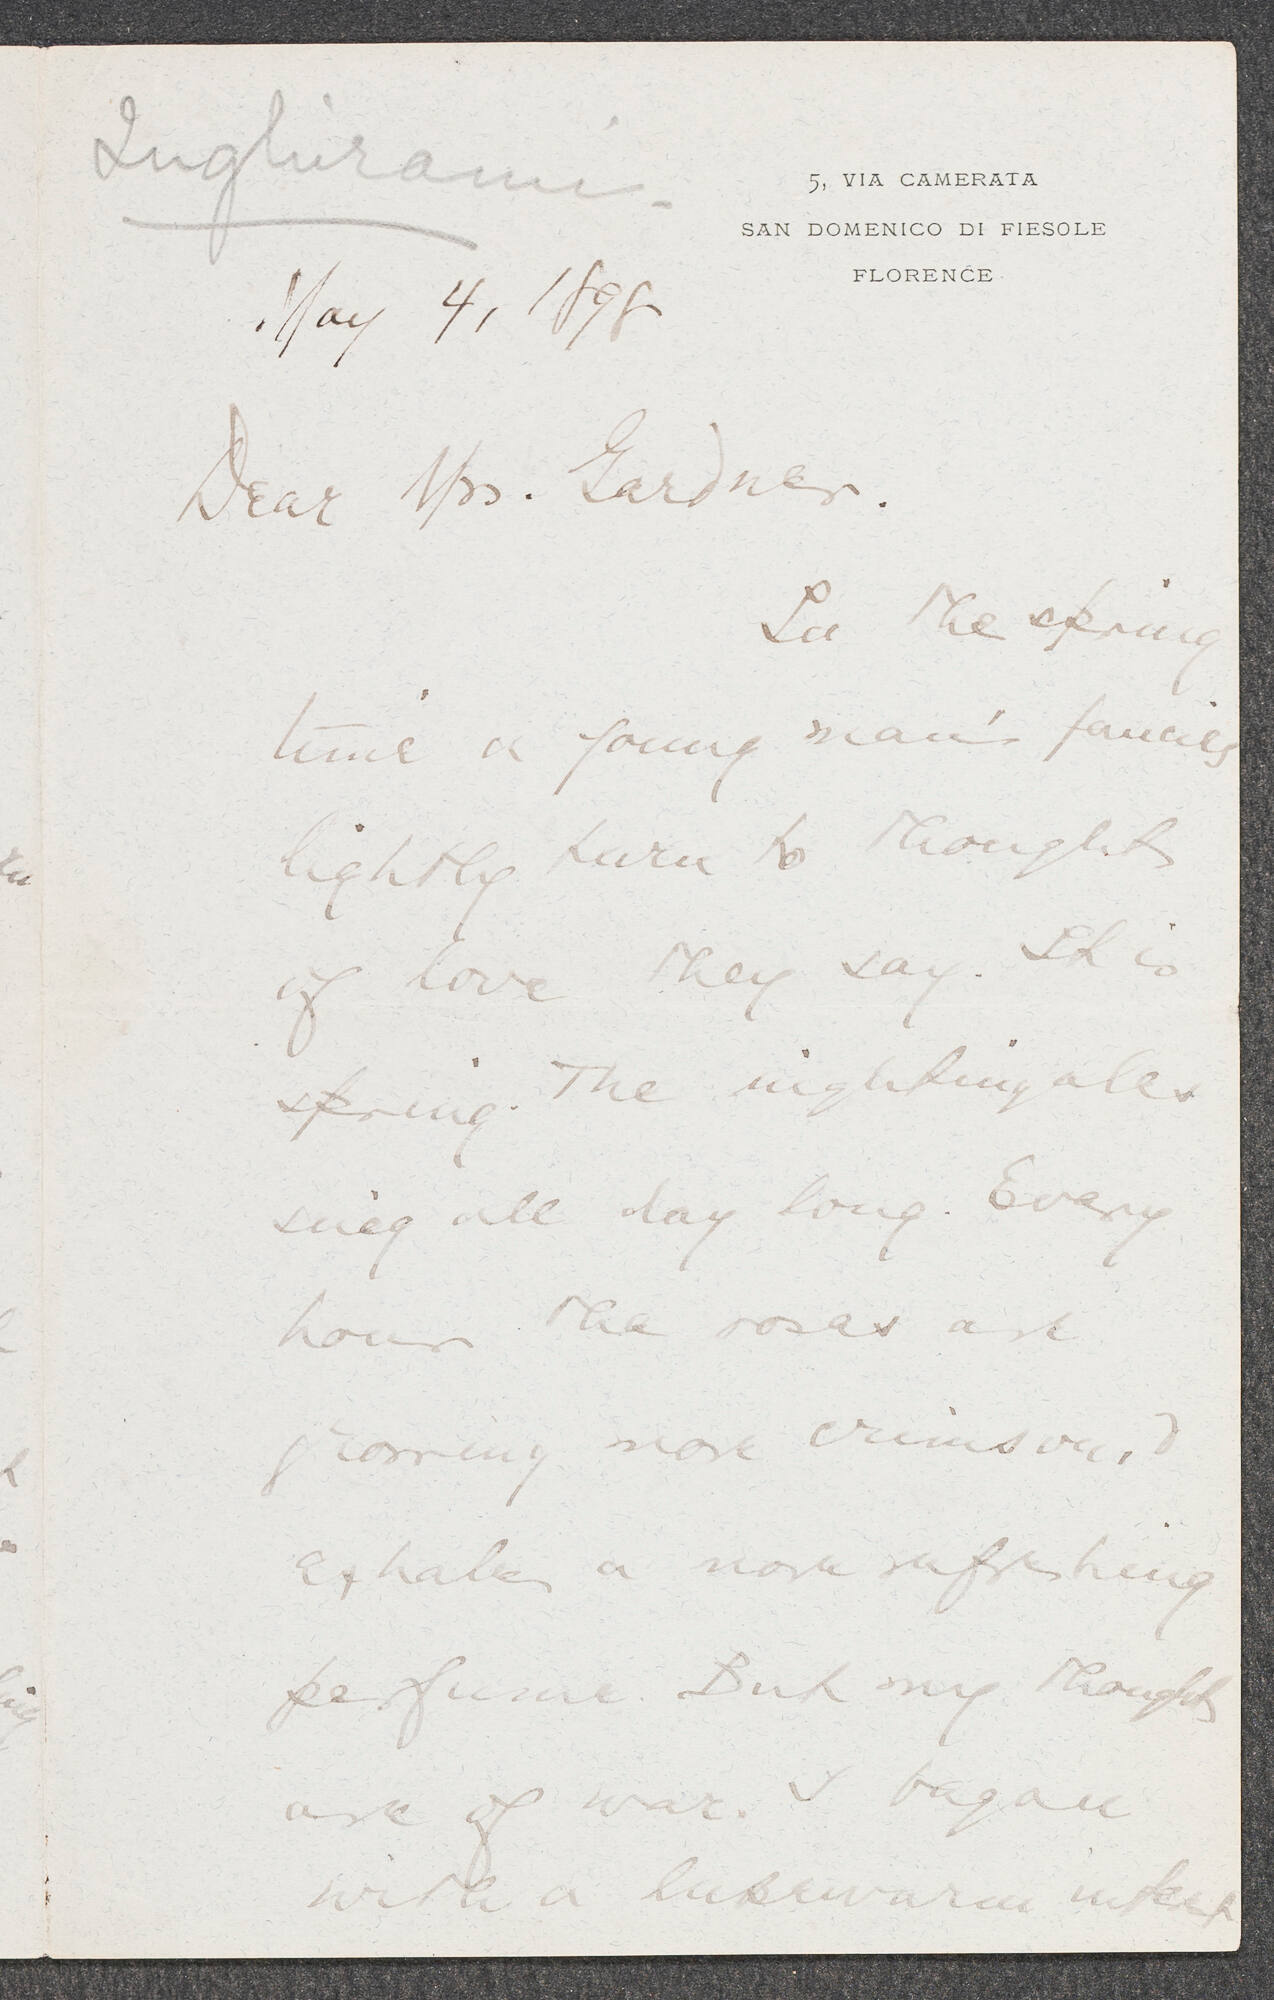 Inghirami.
5, VIA CAMERATA
SAN DOMENICO DI FIESOLE
FLORENCE
May 4, 1898
Dear Mrs. Gardner.
In the spring
time a young man's fancies
lightly turn to thoughts
of love they say. It is
spring. The nightingales
sing all day long. Every
hour the roses are
growing more crimson, &
exhale a more refreshing
perfume. But my thoughts
are of war. I began
with a lukewarm interest